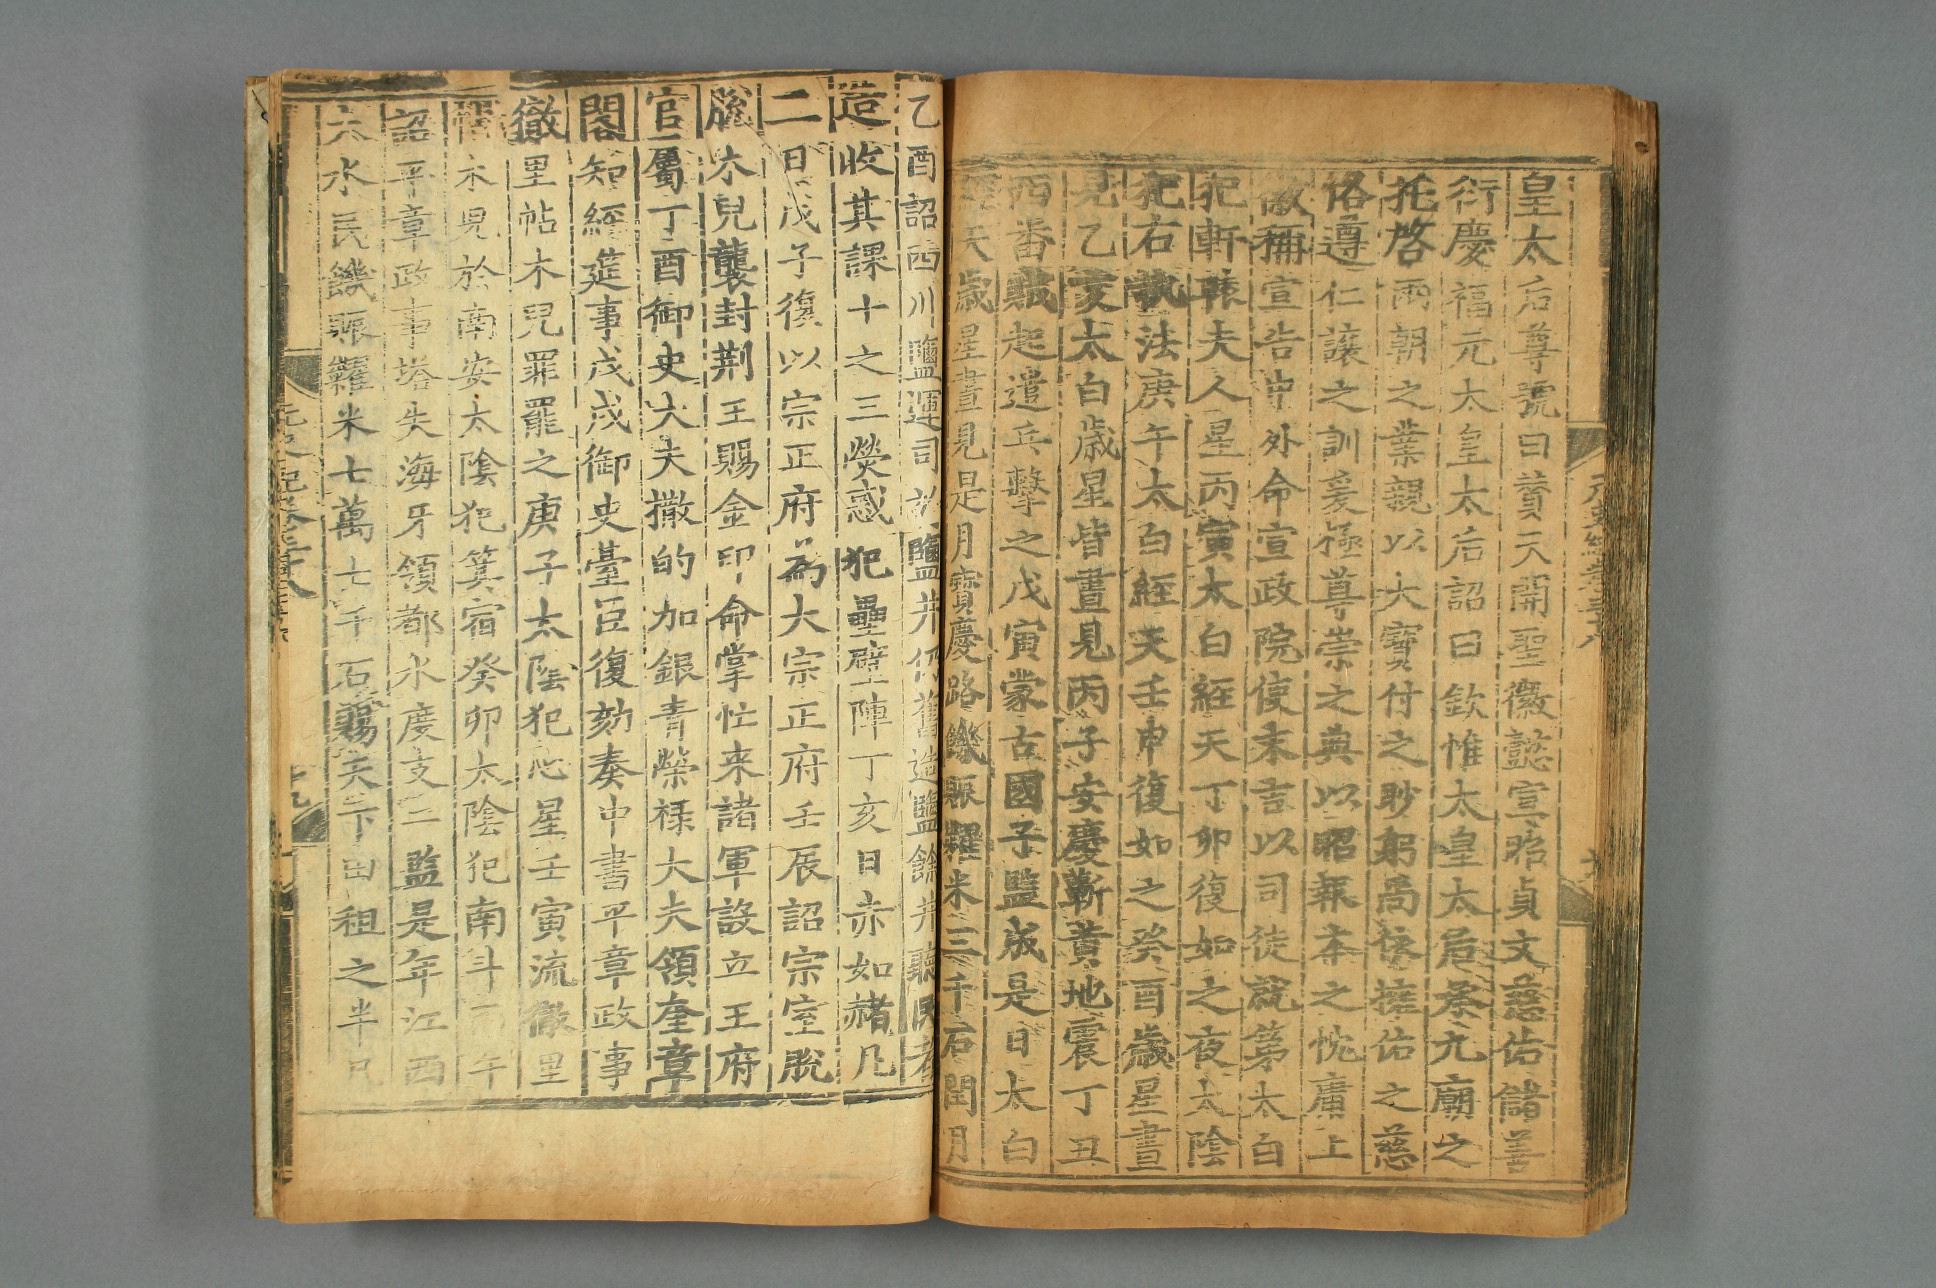 皇太后尊號曰贊天開聖徽懿宣昭貞文慈佑儲善
衍慶福元太皇太后詔曰欽惟太皇太后承九廟之
托啓兩朝之業親以大寶付之眇躬尚依擁佑之慈
恪遵仁讓之訓爰極尊崇之典以昭報本之忱庸上
徽稱宣告中外命宣政院使末吉以司徒就第太白
犯軒轅夫人星丙寅太白經天丁卯復如之夜太陰
犯右執法庚午太白經天壬申復如之癸酉歲星晝
見乙亥太白歲星皆晝見丙子安慶蘄黃地震丁丑
西番賊起遣兵擊之戊寅蒙古國子監成是日太白
經天歲星晝見是月寶慶路饑賑糶米三千石閏月
乙酉詔四川鹽運司於鹽井仍舊造鹽餘井聽民煮
造收其課十之三熒惑犯壘壁陣丁亥日赤如赭凡
二日戊子復以宗正府為大宗正府壬辰詔宗室脫
脫木兒襲封荆王賜金印命掌忙來諸軍設立王府
官屬丁酉御史大夫撒的加銀青榮祿大夫領奎章
閣知經筵事戊戌御史臺臣復劾奏中書平章政事
徹里帖木兒罪罷之庚子太陰犯心星壬寅流徹里
帖木兒於南安太陰犯箕宿癸卯太陰犯南斗丙午
詔平章政事塔失海牙領都水度支二監是年江西
大水民饑賑糶米七萬七千石賜天下田租之半凡